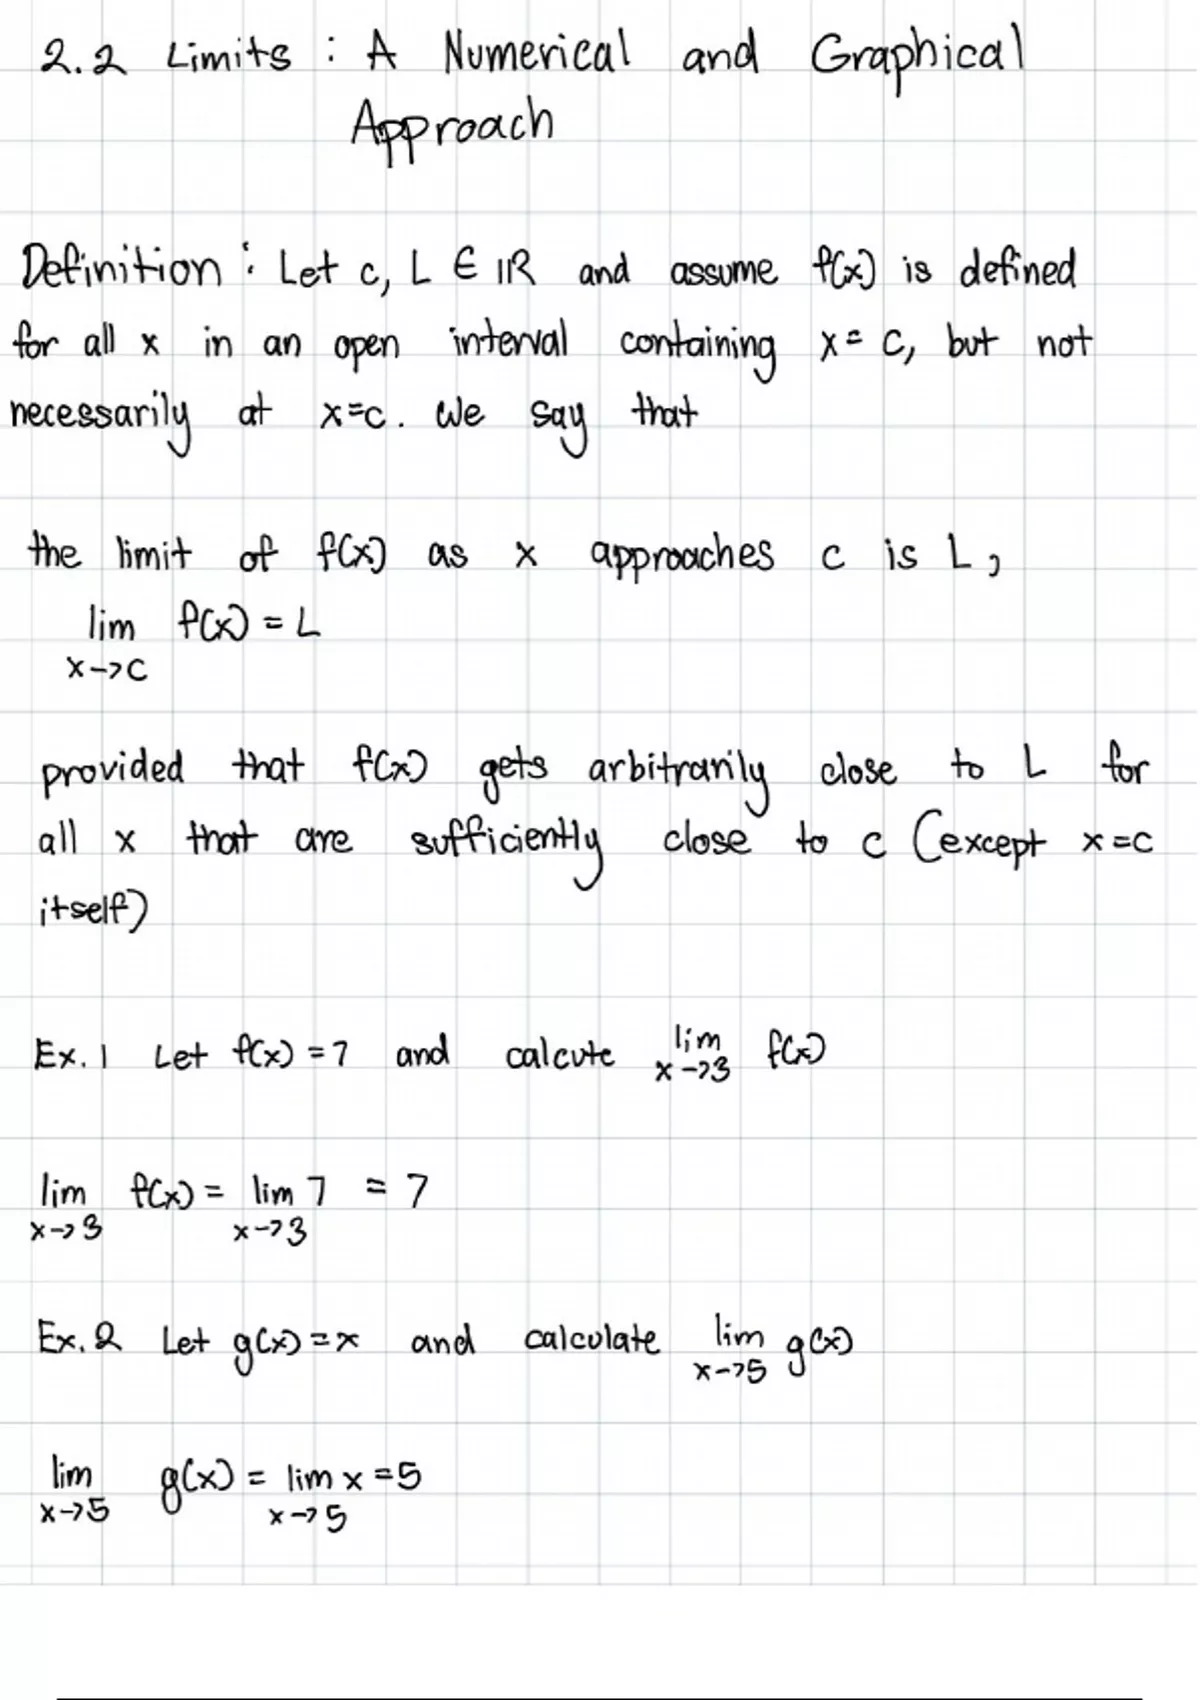 2.2 Limits : A Numerical and Graphical
Approach
Definition : Let c, L ∈ ℝ and assume f(x) is defined
for all x in an open interval containing x = c, but not
necessarily at x=c. We say that
the limit of f(x) as x approaches c is L,
lim f(x) = L
x->c
provided that f(x) gets arbitrarily close to L for
all x that are sufficiently close to c (except x=c
itself)
Ex. 1 Let f(x) = 7 and calcute lim f(x)
x->3
lim f(x) = lim 7 = 7
x->3 x->3
Ex. 2 Let g(x) = x and calculate lim g(x)
x->5
lim g(x) = lim x = 5
x->5 x->5